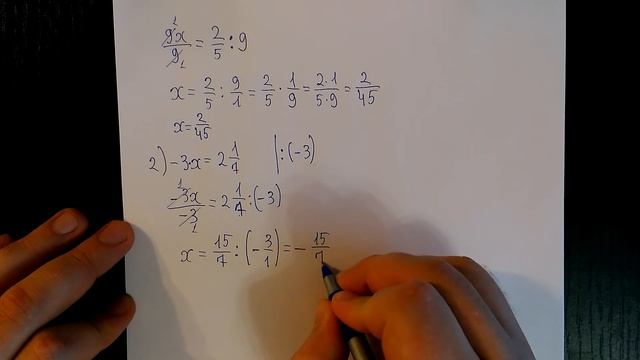 9x/9 = 2/5 : 9
x = 2/5 : 9/1 = 2/5 · 1/9 = 2·1/5·9 = 2/45
x = 2/45
2) -3·x = 2 1/7 |:(-3)
-3x/-3 = 2 1/7 : (-3)
x = 15/7 : (-3/1) = - 15/7